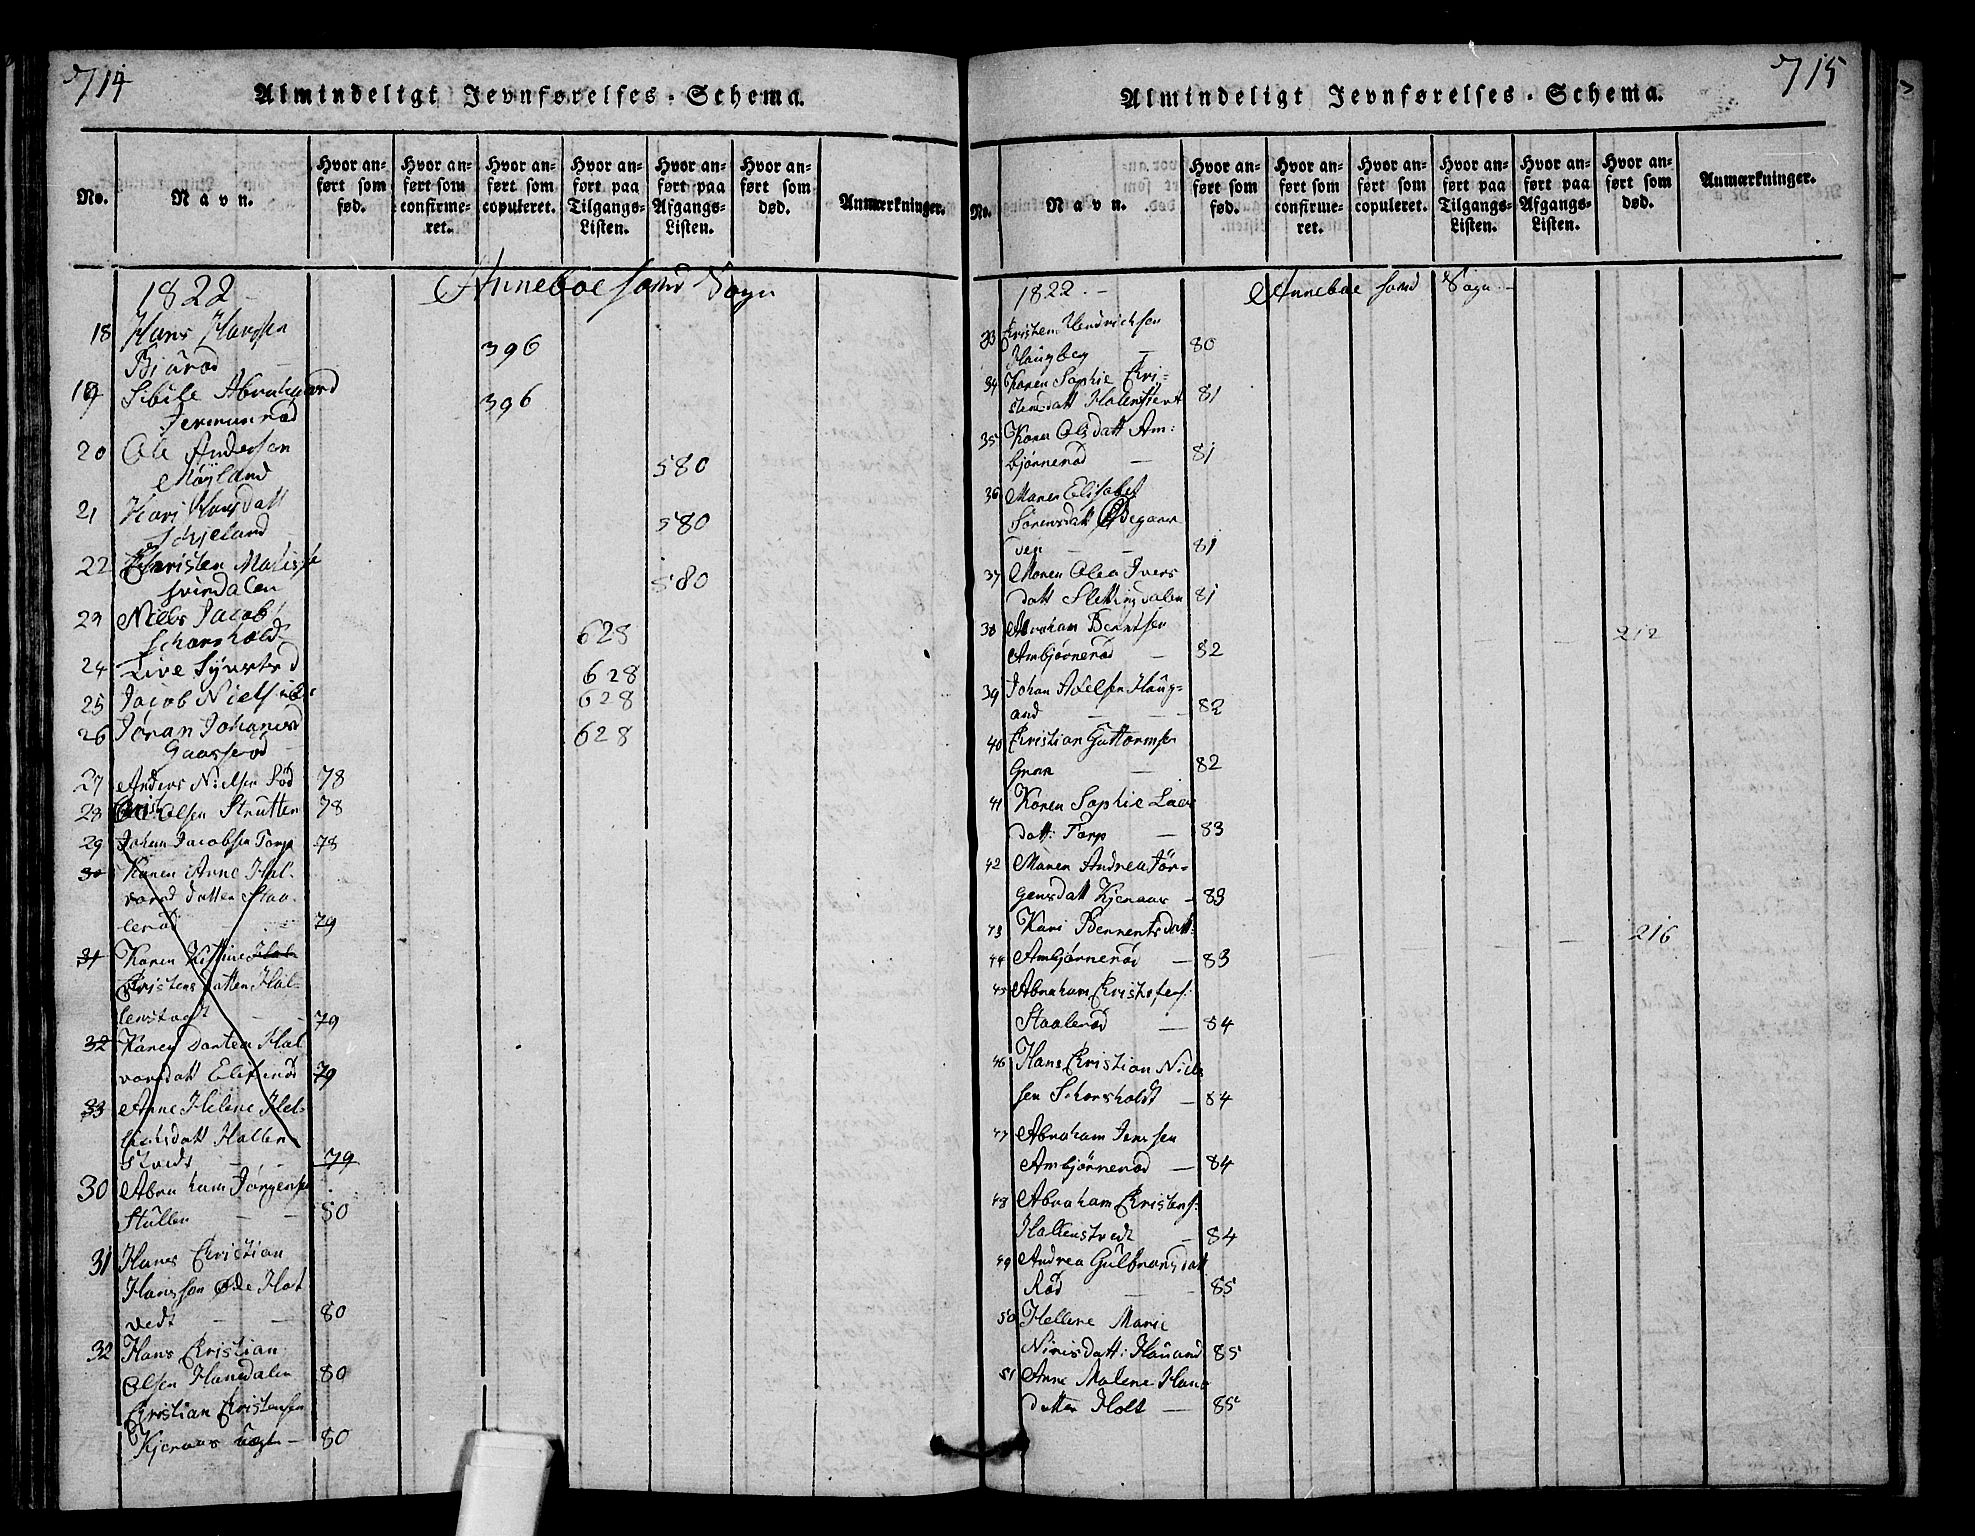 714
Almindeligt Jevnførelses-Schema.
No.
Navn.
Hvor an-
ført som
fød.
Hvor an-
ført som
confirme-
ret.
Hvor an-
ført som
copuleret.
Hvor an-
ført paa
Tilgangs-
Listen.
Hvor an-
ført paa
Afgangs-
Listen.
Hvor an-
ført som
død.
Anmærkninger.
1822 Anneboe sond Sogn
18 Hans Hansen
Biørød 396
19 Sibile Abrahamd
Jermunrød 396
20 Ole Andersen
Røyland 580
21 Kari Hansdatt
580
22 Christen
580
23 Niels Jacob
Schorshold 628
24 Live 628
25 Jacob 628
26 Jøran Johanesd
Gaasserød 628
27 Anders Nielsen Rød 78
28 Olsen Strutten 78
29 Johan Jacobsen Torp 78
30 Karen Anne Hal-
vord datter Staa-
lerød 79
31 Karen
Kristens datter Hal-
79
32 Karen Hal
79
33 Anne Helene
Hallen
79
30 Abraham Jørgensen
Stullen 80
31 Hans Kristian
Hanssøn Øde Holt
vedt 80
32 Hans Kristian
Olsen Hansdalen 80
Kristian Kristensen
Kjenaas 80
715
Almindeligt Jevnførelses-Schema.
No.
Navn.
Hvor an-
ført som
fød.
Hvor an-
ført som
confirme-
ret.
Hvor an-
ført som
copuleret.
Hvor an-
ført paa
Tilgangs-
Listen.
Hvor an-
ført paa
Afgangs-
Listen.
Hvor an-
ført som
død.
Anmærkninger.
1822 Anneboe sond Sogn
33 Kristen Hendrichsen
Haugbeg 80
34 Karen Sophie Kri-
stensdatt 81
35 Karen Olsdatt Am:
bjørnerød 81
36 Maren Elisabet
Sørensdatt
81
37 Maren Olea Ivers
datt Slettingdalen 81
38 Abraham Berntsen 212
Ambjørnerød 82
39 Johan Axelsen Haug-
and 82
40 Kristian Guttormsen
Gron 82
41 Karen Sophie Lars
datt: Torp 83
42 Maren Andrea Jør-
gensdatt Kjenaas 83
43 Kari Bernentsdatt 216
44 Ambjørnerød 83
45 Abraham Kristofers:
Staalerød 84
46 Hans Kristian Niel
sen Schorsholdt 84
47 Abraham Jenssen
Ambjørnerød 84
48 Abraham Kristens:
Hallenstvedt 84
49 Andrea Gulbransdatt
Rød 85
50 Hellene Marie
Nirisdatt: Hauand 85
51 Anne Malene Hans
datter Holt 85